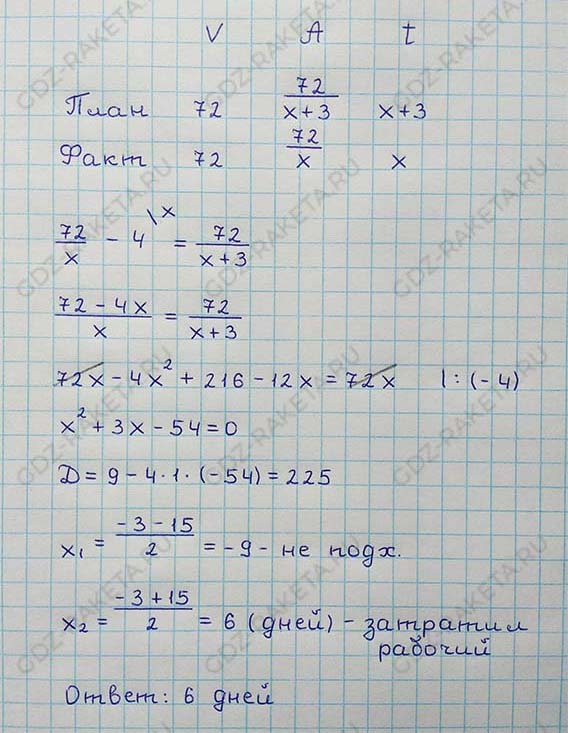 V A t
План 72 72/(x+3) x+3
Факт 72 72/x x
72/x - 4 \x = 72/(x+3)
(72-4x)/x = 72/(x+3)
72x - 4x² + 216 - 12x = 72x |:(-4)
x² + 3x - 54 = 0
D = 9 - 4·1·(-54) = 225
x₁ = (-3-15)/2 = -9 - не подх.
x₂ = (-3+15)/2 = 6 (дней) - затратил
рабочий
Ответ: 6 дней
GDZ-RAKETA.RU